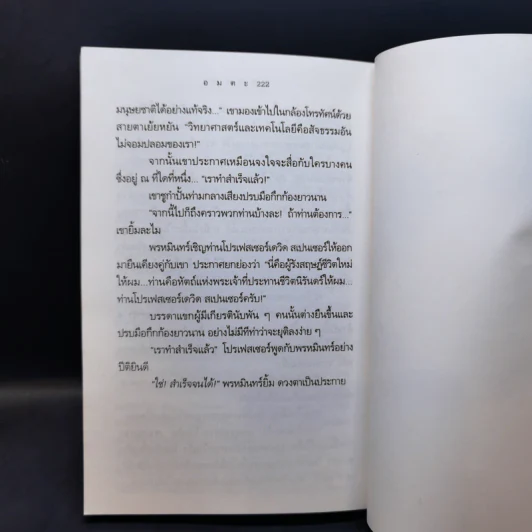 อ ม ต ะ 222
มนุษยชาติได้อย่างแท้จริง..." เขามองเข้าไปในกล้องโทรทัศน์ด้วย
สายตาเย้ยหยัน "วิทยาศาสตร์และเทคโนโลยีคือสัจธรรมอัน
ไม่จอมปลอมของเรา!"
จากนั้นเขาประกาศเหมือนจงใจจะสื่อกับใครบางคน
ซึ่งอยู่ ณ ที่ใดที่หนึ่ง... "เราทำสำเร็จแล้ว!"
เขาชูกำปั้นท่ามกลางเสียงปรบมือกึกก้องยาวนาน
"จากนี้ไปก็ถึงคราวพวกท่านบ้างละ! ถ้าท่านต้องการ..."
เขายิ้มละไม
พรหมินทร์เชิญท่านโปรเฟสเซอร์เดวิด สเปนเซอร์ให้ออก
มายืนเคียงคู่กับเขา ประกาศยกย่องว่า "นี่คือผู้รังสฤษฎ์ชีวิตใหม่
ให้ผม...ท่านคือหัตถ์แห่งพระเจ้าที่ประทานชีวิตนิรันดร์ให้ผม...
ท่านโปรเฟสเซอร์เดวิด สเปนเซอร์ครับ!"
บรรดาแขกผู้มีเกียรตินับพัน ๆ คนนั้นต่างยืนขึ้นและ
ปรบมือกึกก้องยาวนาน อย่างไม่มีทีท่าว่าจะยุติลงง่าย ๆ
"เราทำสำเร็จแล้ว" โปรเฟสเซอร์พูดกับพรหมินทร์อย่าง
ปีติยินดี
"ใช่! สำเร็จจนได้!" พรหมินทร์ยิ้ม ดวงตาเป็นประกาย